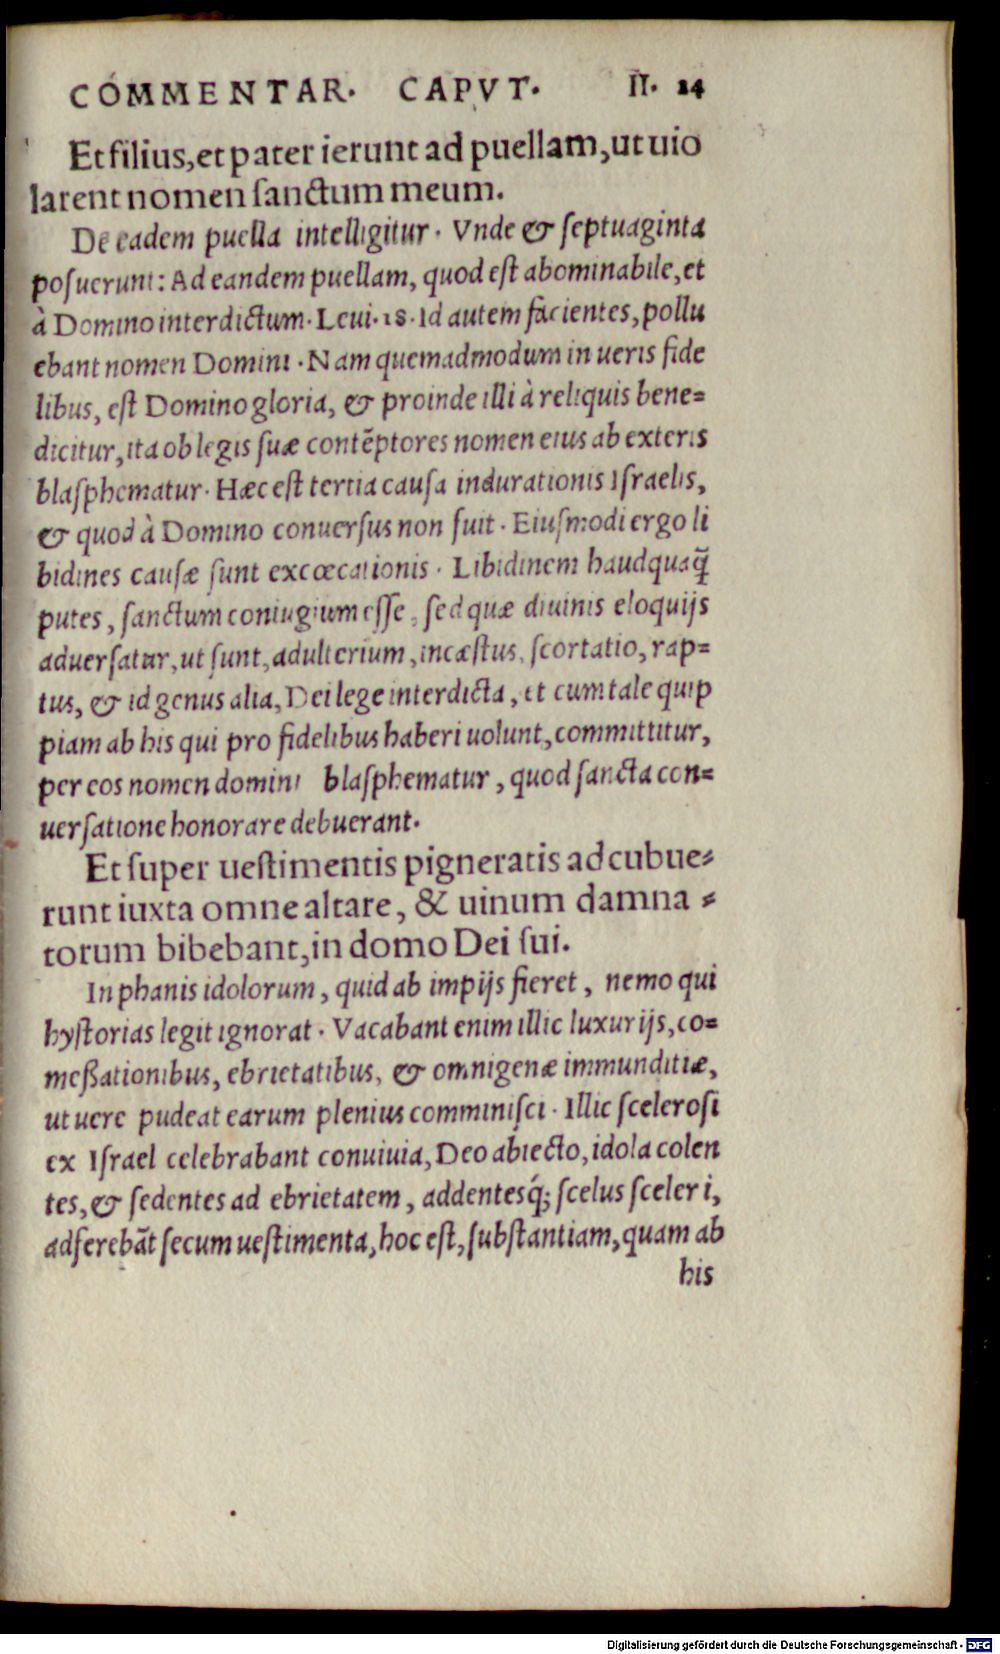 COMMENTAR. CAPVT. II. 24
Et filius, et pater ierunt ad puellam, ut uio
larent nomen ſanctum meum.
De eadem puella intelligitur. Vnde & ſeptuaginta
poſuerunt: Ad eandem puellam, quod eſt abominabile, et
à Domino interdictum. Leui. 18. Id autem facientes, pollu
ebant nomen Domini. Nam quemadmodum in ueris fide
libus, eſt Domino gloria, & proinde illi à reliquis bene=
dicitur, ita ob legis ſuæ contẽptores nomen eius ab exteris
blaſphematur. Hæc eſt tertia cauſa indurationis Iſraelis,
& quod à Domino conuerſus non fuit. Eiuſmodi ergo li
bidines cauſæ ſunt excœcationis. Libidinem haudquaq̃
putes, ſanctum coniugium eſſe, ſed quæ diuinis eloquijs
aduerſatur, ut ſunt, adulterium, incæſtus, ſcortatio, rap=
tus, & id genus alia, Dei lege interdicta, et cum tale quip
piam ab his qui pro fidelibus haberi uolunt, committitur,
per eos nomen domini blaſphematur, quod ſancta con=
uerſatione honorare debuerant.
Et ſuper ueſtimentis pigneratis adcubue=
runt iuxta omne altare, & uinum damna =
torum bibebant, in domo Dei ſui.
In phanis idolorum, quid ab impijs fieret, nemo qui
hyſtorias legit ignorat. Vacabant enim illic luxurijs, co=
meßationibus, ebrietatibus, & omnigenæ immunditiæ,
ut uere pudeat earum plenius comminiſci. Illic ſceleroſi
ex Iſrael celebrabant conuiuia, Deo abiecto, idola colen
tes, & ſedentes ad ebrietatem, addentesq́; ſcelus ſceleri,
adferebãt ſecum ueſtimenta, hoc eſt, ſubſtantiam, quam ab
his
Digitalisierung gefördert durch die Deutsche Forschungsgemeinschaft - DFG